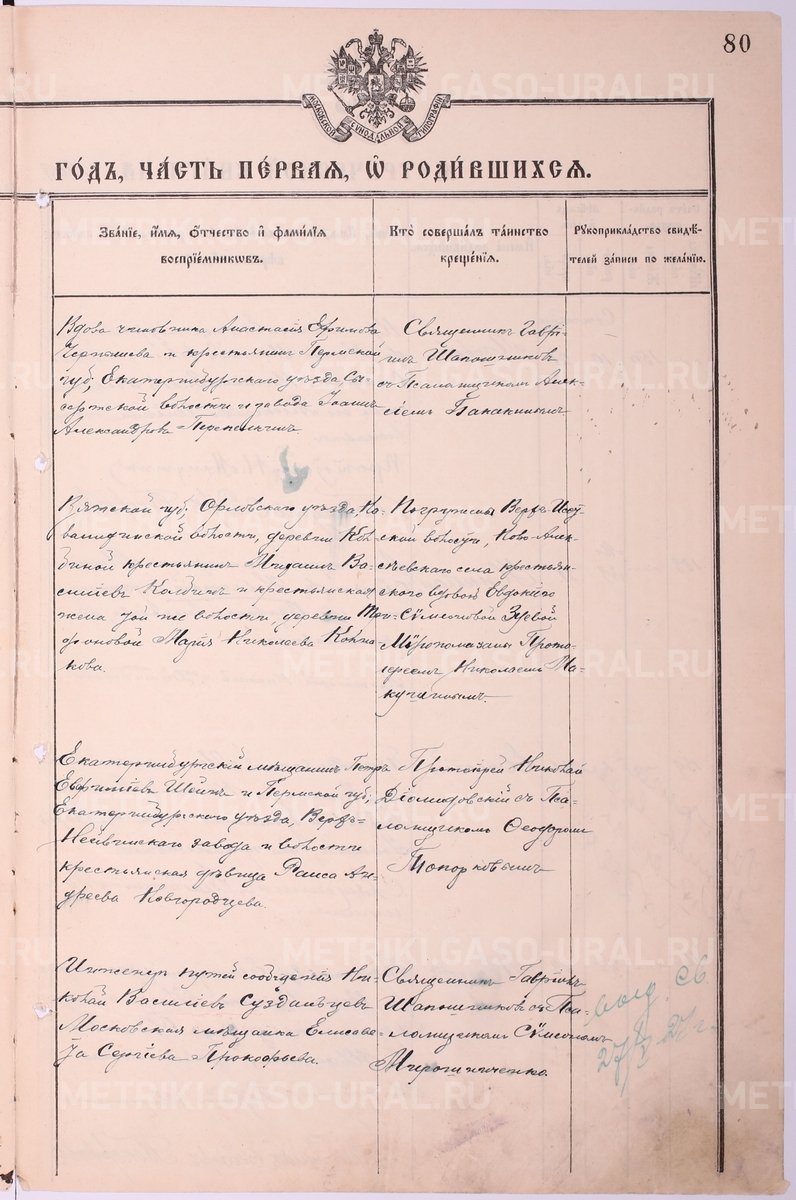 80
МОСКОВСКОЙ СУНОДАЛЬНОЙ ТИПОГРАФІИ
ГОДЪ, ЧАСТЬ ПЕРВАЯ, Ѿ РОДИВШИХСЯ.
Званіе, имя, отчество и фамилія
воспріемниковъ.
Кто совершалъ таинство
крещенія.
Рукоприкладство свидѣ-
телей записи по желанію.
Вдова чиновника Анастасія Ефимова
и крестьянинъ Пермской
губ., Екатеринбургскаго уѣзда, Сы-
сертской волости и завода Іоаннъ
Александровъ Перепелкинъ
Священникъ Гаврі-
илъ Шапошниковъ
съ Псаломщикомъ Алек-
сѣемъ
Вятской губ., Орловскаго уѣзда, Ко-
волости, деревни Кол-
биной крестьянинъ Михаилъ Ва-
сильевъ Колбинъ и крестьянская
жена той же волости, деревни
Марія Николаева
кова.
Погружены Верхъ-Исет-
ской волости, Ново-Алек-
сѣевскаго села крестьян-
скаго вдовой Евдокіею
Симеоновой Зуевой
Миропомазаны Прото-
іереемъ Николаемъ Ма-
кушинымъ.
Екатеринбургскій мѣщанинъ Петръ
Евфиміевъ Шеинъ и Пермской губ.,
Екатеринбургскаго уѣзда, Верхъ-
Нейвинскаго завода и волости
крестьянская дѣвица Раиса Ан-
дреева Новгородцева.
Протоіерей Николай
Діомидовскій съ Пса-
ломщикомъ Ѳеодоромъ
Топорковымъ
Инженеръ путей сообщенія Ни-
колай Васильевъ Суздальцевъ
Московская мѣщанка Елисаве-
та Сергіева Прокофьева.
Священникъ Гавріилъ
Шапошниковъ съ Пса-
ломщикомъ Симеономъ
Мирошниченко.
выд. св.
27/I 27 г.
METRIKI.GASO-URAL.RU